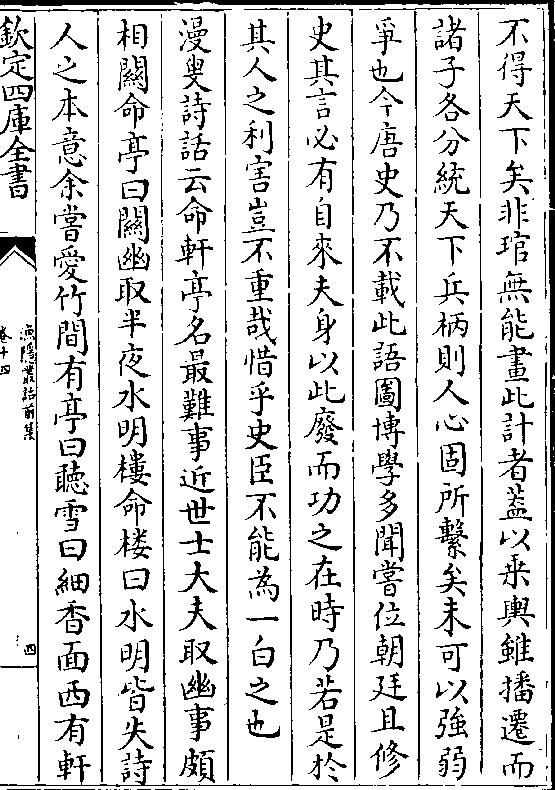 不得天下矣非琯無能畫此計者葢以乗輿雖播遷而
諸子各分統天下兵柄則人心固所繫矣未可以強弱
爭也今唐史乃不載此語圖博學多聞嘗位朝廷且修
史其言必有自來夫身以此廢而功之在時乃若是於
其人之利害豈不重哉惜乎史臣不能為一白之也
漫叟詩話云命軒亭名最難事近世士大夫取幽事頗
相闗命亭曰闗幽取半夜水明樓命楼曰水明皆失詩
人之本意余嘗愛竹間有亭曰聽雪曰細香面西有軒
欽定四庫全書
漁隱叢話前集
卷十四
四